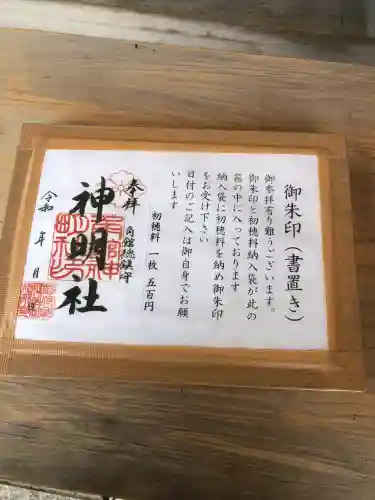 御朱印（書置き）
御参拝有り難うございます。
御朱印と初穂料納入袋が此の
箱の中に入っております
納入袋に初穂料を納め御朱印
をお受け下さい
日付のご記入は御自身でお願
いします
初穂料 一枚 五百円
奉拝
角館総鎮守
神明社
令和 年 月 日